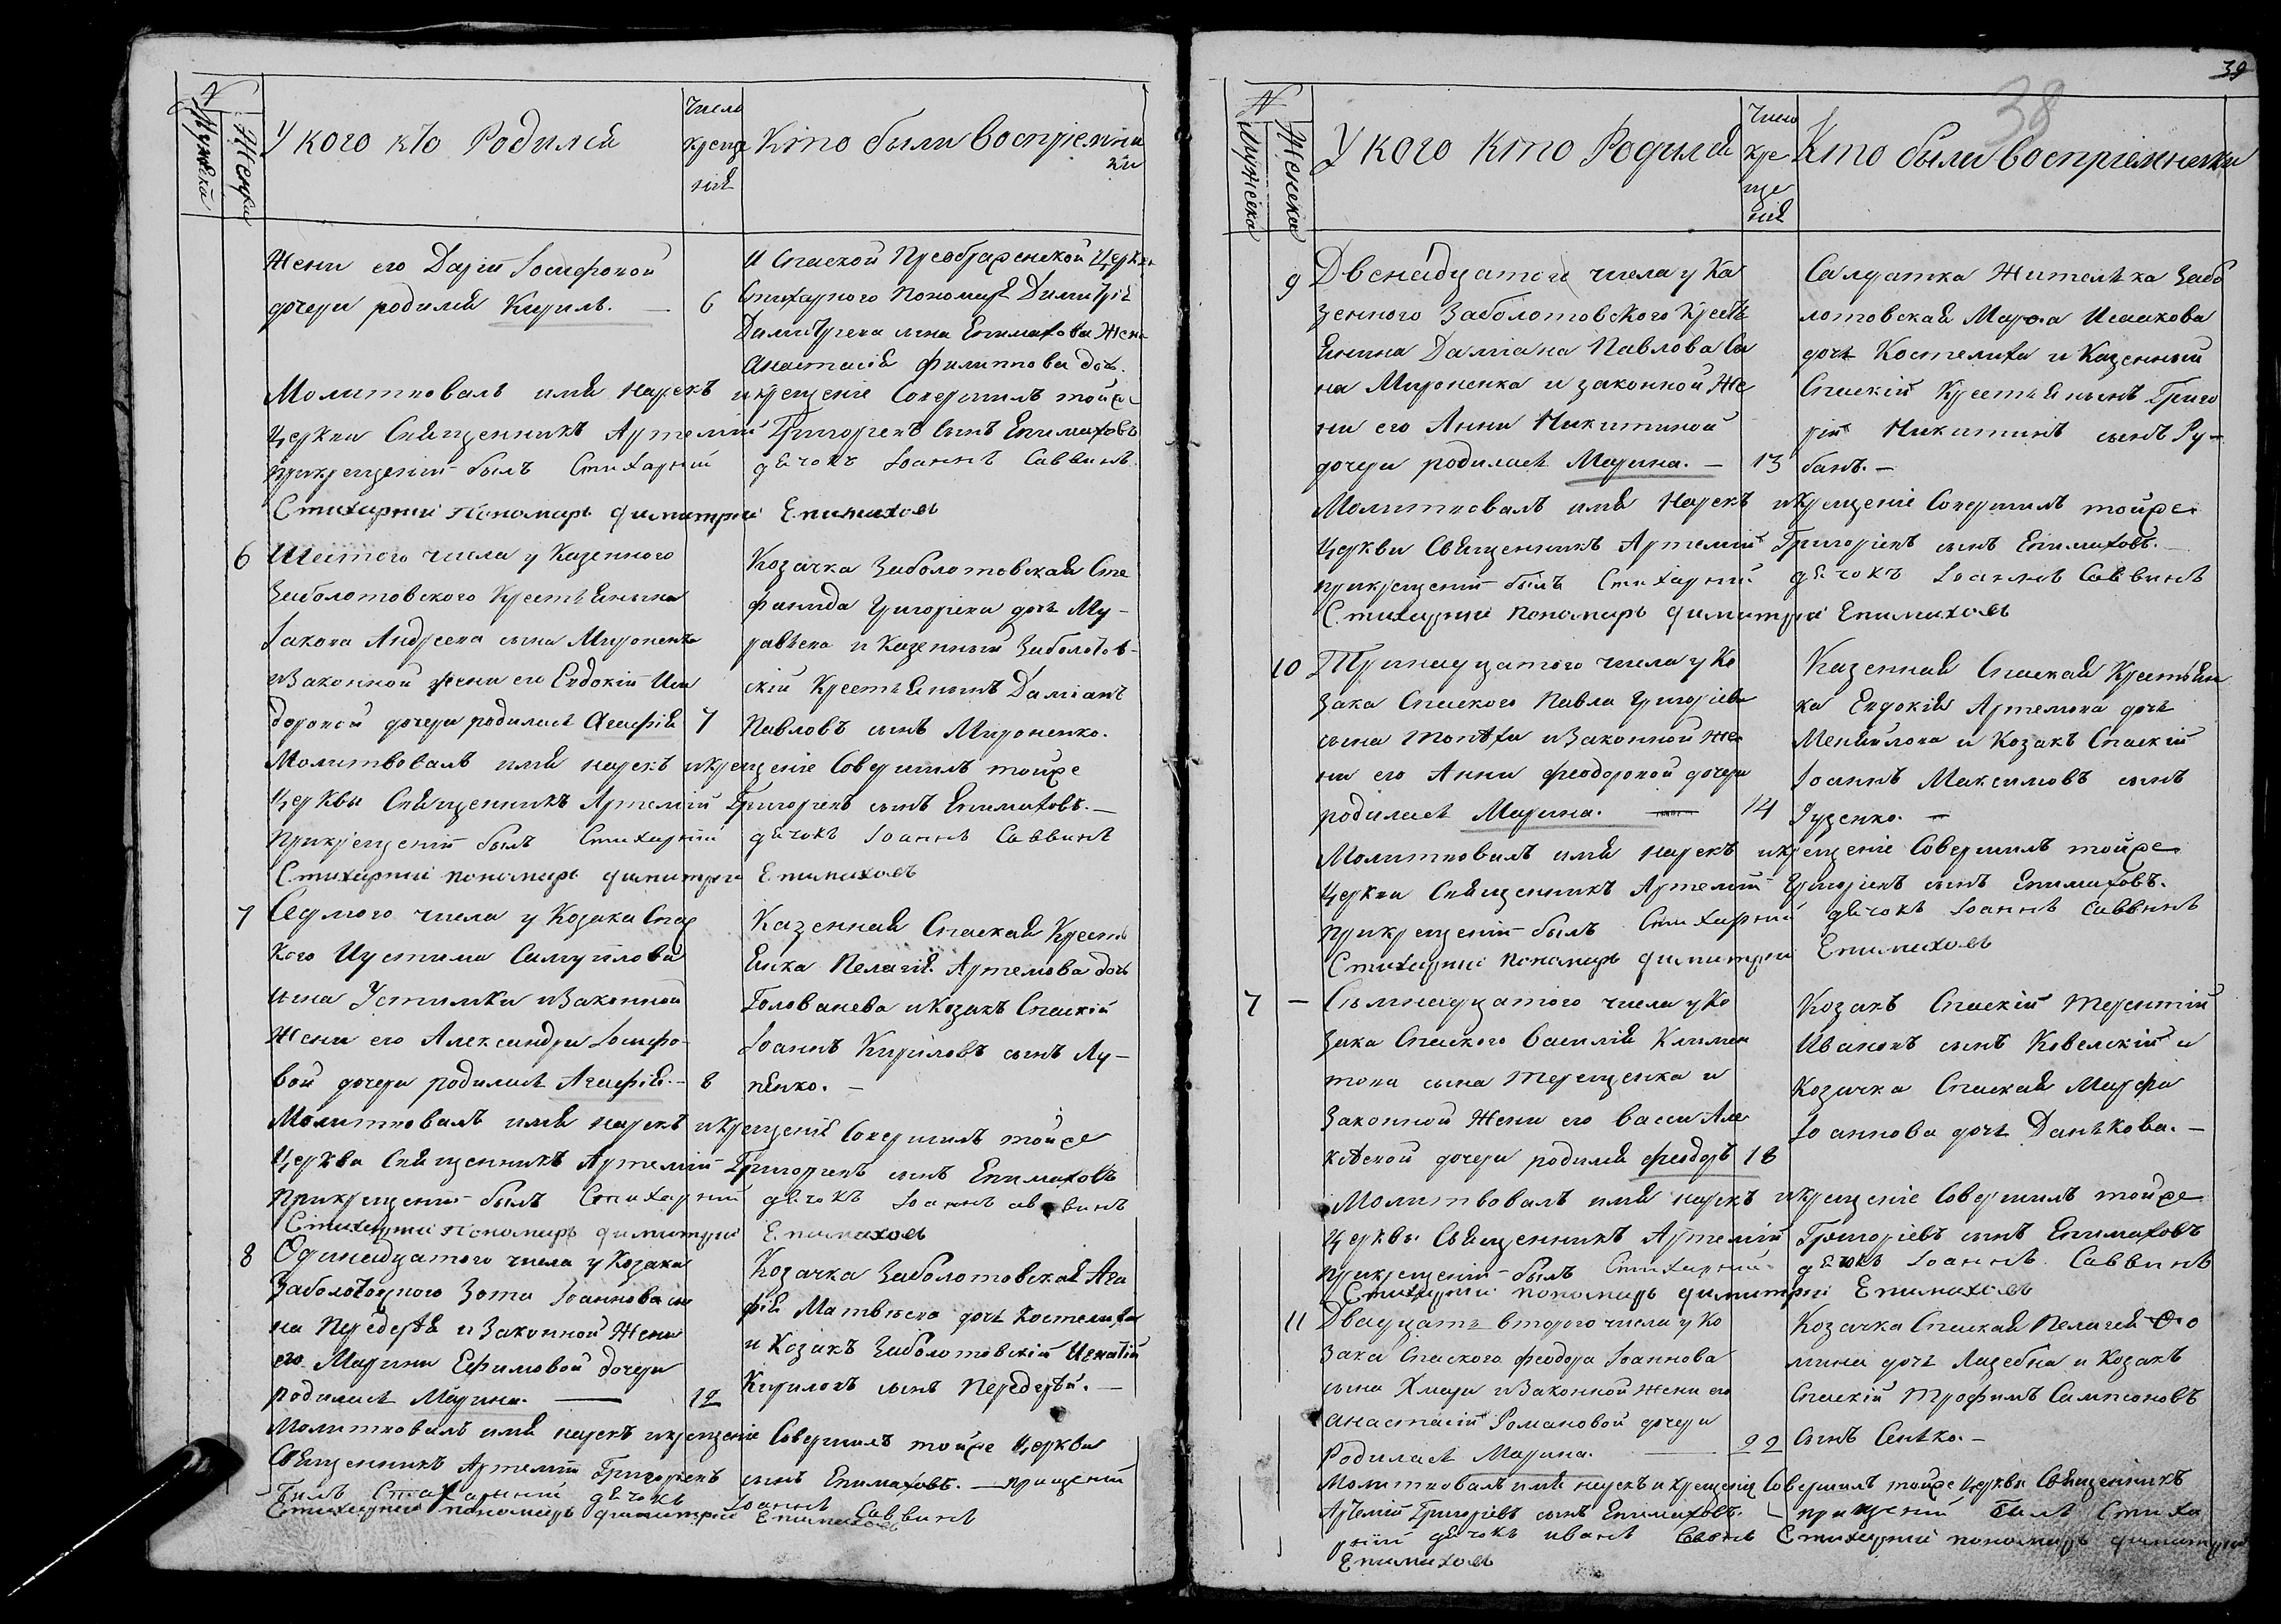 N
Мужеска
Женска
У кого кто Родился
Число
креще
нія
Кто были воспріемни
ки
Жени его Даріи Іосифовой
дочери родился Кирилъ. — 6
и Спаской Преображенской Церкви
Стихарного Пономаря Димитрія
Димитріева сына Епимахова Жена
Анастасія Филиппова дочь.
Молитвовалъ имя нарекъ и крещеніе Совершилъ тойже
Церкви Священникъ Артемій Григоріевъ сынъ Епимаховъ
при крещеніи былъ Стихарный дячокъ Іоаннъ Саввинъ
Стихарный пономарь Димитрій Епимаховъ
6 Шестого числа у Казенного
Заболотовского Крестьянина
Іакова Андреева сына Мироненка
и Законной жени его Евдокіи Иси
доровой дочери родилась Агафія 7
Козачка Заболотовская Сте
фанида Григоріева дочь Му-
равьева и Казенный Заболотов-
скій Крестьянинъ Даміанъ
Павловъ сынъ Мироненко.
Молитвовалъ имя нарекъ и крещеніе Совершилъ тойже
Церкви Священникъ Артемій Григоріевъ сынъ Епимаховъ. —
При крещеніи былъ Стихарный дячокъ Іоаннъ Саввинъ
Стихарный пономарь Димитрій Епимаховъ
7 Седмого числа у Козака Спас
кого Иустима Самуйлова
сына Устимка и Законной
Жени его Александри Іосифо-
вой дочери родилась Агафія. - 8
Казенная Спаская Кресть
янка Пелагія Артемова дочь
Голованева и Козакъ Спаскій
Іоаннъ Кириловъ сынъ Лу-
пенко. —
Молитвовалъ имя нарекъ и крещенія Совершилъ тойже
Церкви Священникъ Артемій Григоріевъ сынъ Епимаховъ
При крещеніи былъ Стихарный дячокъ Іоаннъ Саввинъ
Стихарный пономарь Димитрій Епимаховъ
8 Одинадцатого числа у Козака
Заболотоцного Зота Іоаннова сы
на Передерѣя и Законной Жени
его Марини Ефимовой дочери
родилась Марина. — 12
Козачка Заболотовская Ага
фія Матвѣева дочь Костелиха
и Козакъ Заболотовскій Игнатій
Кириловъ сынъ Передерѣй. —
Молитвовалъ имя нарекъ и крещеніе Совершилъ тойже Церкви
Священникъ Артемій Григоріевъ сынъ Епимаховъ. — при щеніи
билъ Стихарный дячокъ Іоаннъ Саввинъ
Стихарный пономарь Димитрій Епимаховъ
39
38
N
Мужеска
Женска
У кого кто Родился
Число
кре
ще
нія
Кто были воспріемники
9 Двенадцатого числа у Ка
зенного Заболотовского Кресть
янина Даміана Павлова Сы
на Мироненка и законной Же
ни его Анни Никитиной
дочери родилась Марина. — 13
Салдатка Жителька Забо
лотовская Марфа Исаакова
дочь Костелиха и Казенный
Спаскій Крестьянинъ Григо
рій Никитинъ сынъ Ру-
банъ. —
Молитвовалъ имя нарекъ и крещеніе Совершилъ тойже
Церкви Священникъ Артемій Григоріевъ сынъ Епимаховъ. —
при крещеніи былъ Стихарный дячокъ Іоаннъ Саввинъ
Стихарный пономарь Димитрій Епимаховъ
10 Тринадцатого числа у Ко
зака Спаского Павла Григоріева
сына Монѣхи и Законной Же
ни его Анни Феодоровой дочери
родилась Марина. — 14
Казенная Спаская Крестьян
ка Евдокія Артемова дочь
Менайлова и Козакъ Спаскій
Іоаннъ Максимовъ сынъ
Гузенко. —
Молитвовалъ имя нарекъ и крещеніе Совершилъ тойже
Церкви Священникъ Артемій Григоріевъ сынъ Епимаховъ.
При крещеніи былъ Стихарный дячокъ Іоаннъ Саввинъ
Стихарный пономарь Димитрій Епимаховъ
7 — Сьмнадцатого числа у Ко
зака Спаского Василія Климен
това сына Терещенка и
Законной Жени его Васси Але
ксѣевой дочери родился Феодоръ 18
Козакъ Спаскій Терентій
Ивановъ сынъ Ковелскій и
Козачка Спаская Марфа
Іоаннова дочь Данькова. —
Молитвовалъ имя нарекъ и крещеніе Совершилъ тойже
Церкви Священникъ Артемій Григоріевъ сынъ Епимаховъ
при крещеніи былъ Стихарный дячокъ Іоаннъ Саввинъ
Стихарный пономарь Димитрій Епимаховъ
11 Двадцать второго числа у Ко
зака Спаского Феодора Іоаннова
сына Хмари и Законной жени его
Анастасіи Романовой дочери
Родилась Марина. — 22
Козачка Спаская Пелагея Фо
мина дочь Лазебна и Козакъ
Спаскій Трофимъ Сампсоновъ
сынъ Сенько. —
Молитвовалъ имя нарекъ и крещеніе Совершилъ тойже Церкви Священникъ
Артемій Григоріевъ сынъ Епимаховъ. — при щеніи билъ Стиха
рный дячокъ Иванъ Савинъ Стихарный пономарь Димитрій
Епимаховъ